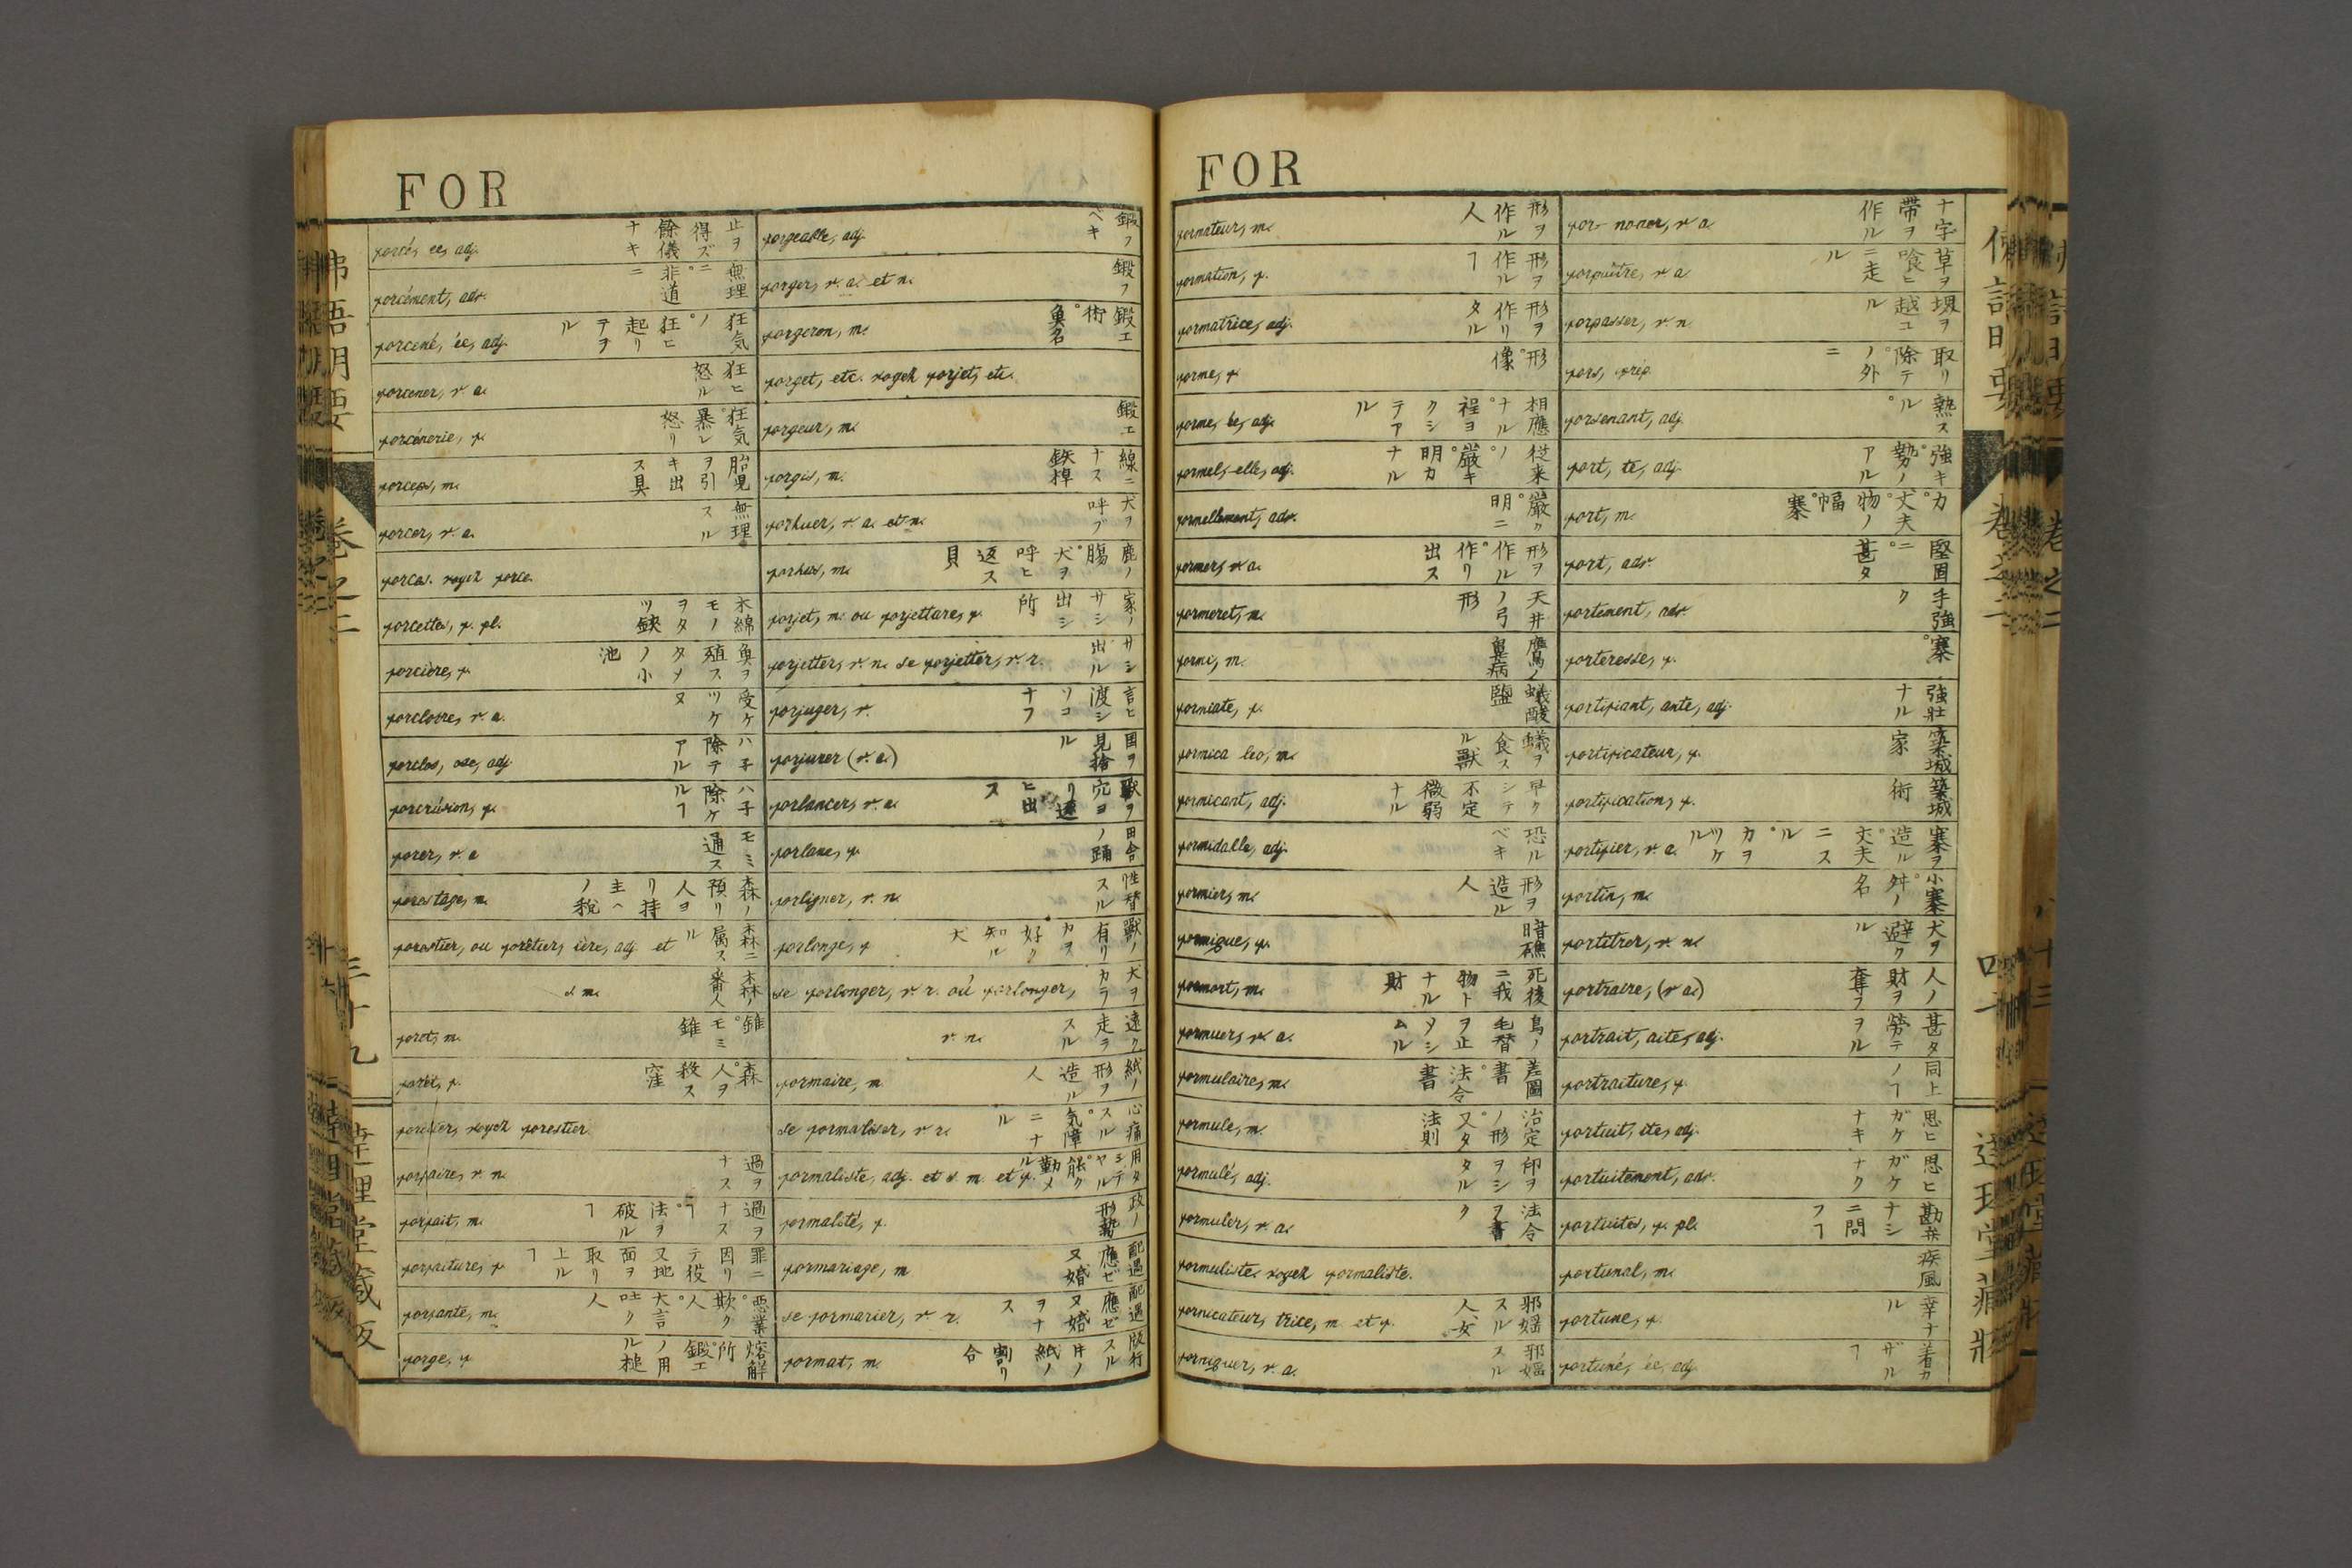 FOR
forcé, ée, adj. 止ヲ得ズ餘儀ナキ
forcément, adv. 無理ニ。非道ニ
forcené, ée, adj. 狂気ノ。狂ヒ起リテヲル
forcener, v. a. 狂ヒ怒ル
forcénerie, f. 狂気。暴レ怒リ
forceps, m. 胎児ヲ引キ出ス具
forcer, v. a. 無理スル
forces. voyez force.
forcettes, f. pl. 木綿モノヲタツ鋏
forcière, f. 魚ヲ殖スタメノ小池
forclore, v. a. 受ケツケヌ
forclos, ose, adj. ハ子除テアル
forclusion, f. ハ子除ケルヿ
forer, v. a. モミ通ス
forestage, m. 森ノ預リ人ヨリ持主ヘノ税
forestier, ou forêtier, ière, adj. et 森ニ属スル
s. m. 森ノ番人
foret, m. 錐。モミ錐
forêt, f. 森。人ヲ殺ス窪
forêtier, voyez forestier.
forfaire, v. n. 過ヲナス
forfait, m. 過ヲナスヿ。法ヲ破ルヿ
forfaiture, f. 罪ニ因リテ役又地面ヲ取リ上ルヿ
forfante, m. 悪業。欺ク人。大言吐ク人
forge, f. 熔解所。鍛エノ用ル槌
forgeable, adj. 鍛フベキ
forger, v. a. et n. 鍛フ
forgeron, m. 鍛エ術。魚名
forget, etc. voyez forjet, etc.
forgeur, m. 鍛エ
forgis, m. 線ニナス鉄棹
forhuer, v. a. et n. 犬ヲ呼ブ
forhus, m. 鹿ノ腸。犬ヲ呼ヒ返ス貝
forjet, m. ou forjetture, f. 家ノサシ出シ所
forjetter, v. n. se forjetter, v. r. サシ出ル
forjuger, v. 言ヒ渡シソコナフ
forjurer (v. a.) 国ヲ見捨ル
forlancer, v. a. 獣ヲ穴ヨリ逐ヒ出ス
forlane, f. 田舎ノ踊
forligner, v. n. 性替スル
forlonge, f. 獣ノ有リカヲ好ク知ル犬
se forlonger, v. r. ou forlonger, 犬ヲカラ
v. n. 遠ク走ラスル
formaire, m. 紙ノ形ヲ造ル人
se formaliser, v. r. 心痛スル。気障ニナル
formaliste, adj. et s. m. et f.
formalité, f. 政ノ形勢
formariage, m. 配遇應ゼヌ婚
se formarier, v. r. 配遇應ゼヌ婚ヲナス
format, m. 版行スル書ノ紙ノ割リ合
佛語明要
卷之二
三十九
達理堂藏版
FOR
formateur, m. 形ヲ作ル人
formation, f. 形ヲ作ルヿ
formatrice, adj. 形ヲ作リタル
forme, f. 形。像
formé, ée, adj. 相應ナル。程ヨクシテアル
formel, elle, adj. 従来ノ。厳キ。明カナル
formellement, adv. 厳ク。明ニ
former, v. a. 形ヲ作ル。作リ出ス
formeret, m. 天井ノ弓形
formi, m. 鷹ノ鼻病
formiate, f. 蟻酸鹽
formica leo, m. 蟻ヲ食スル獣
formicant, adj. 早クシテ不定微弱ナル
formidable, adj. 恐ルベキ
formier, m. 形ヲ造ル人
formigue, f. 暗礁
formort, m. 死後ニ我物トナル財
formuer, v. a. 鳥ノ毛替ヲ止メシムル
formulaire, m. 差圖書。法令書
formule, m. 治定ノ形。又タ法則
formulé, adj. 印ヲヲシタル
formuler, v. a. 法令ヲ書ク
formuliste. voyez formaliste.
fornicateur, trice, m. et f. 邪婬スル人。女
forniquer, v. a. 邪婬スル
for-nouer, v. a. 十字帯ヲ作ル
forpaître, v. a. 草ヲ喰ヒニ走ル
forpasser, v. n. 堺ヲ越ユル
fors, prép. 取リ除テ。ノ外ニ
forsenant, adj. 熱スル。
fort, te, adj. 強キ。勢ノアル
fort, m. 力。丈夫。物ノ幅。寨
fort, adv. 堅固ニ。甚タ
fortement, adv. 手強ク
forteresse, f. 寨。
fortifiant, ante, adj. 強壮ナル
fortificateur, f. 築城家
fortification, f. 築城術
fortifier, v. a. 寨ヲ造ル。丈夫ニスル。力ヲツケル
fortin, m. 小寨。舛ノ名
fortitrer, v. n. 犬ヲ避クル
fortraire, (v. a.) 人ノ財ヲ奪フ
fortrait, aite, adj. 甚タ労テヲル
fortraiture, f. 同上ノヿ
fortuit, ite, adj. 思ヒガケナキ
fortuitement, adv. 思ヒガケナク
fortuites, f. pl. 勘弁ナシニ問フヿ
fortunal, m. 疾風
fortune, f.
fortuné, ée, adj.